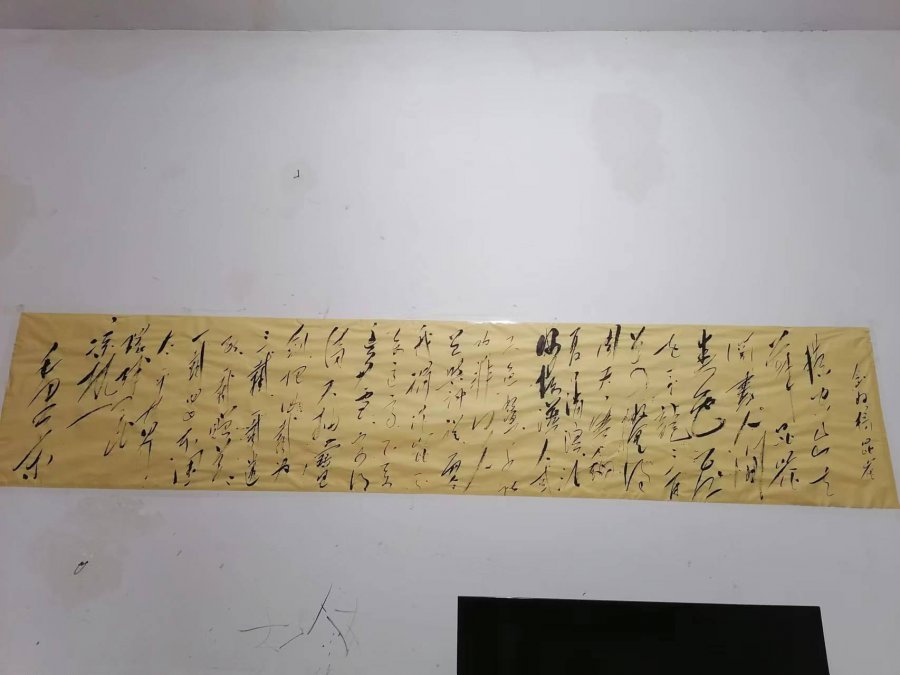 念奴娇 昆仑
横空出世
莽昆仑
阅尽人间
春色飞起
玉龙三百
万搅得
周天寒彻
夏日消溶江
河横溢人或
我谓昆仑不
要这高不要
这多雪安得
倚天抽宝
剑把汝裁为
三截一截遗
欧一截赠美
一截还东国
太平世界
环球同此
凉热
毛泽东